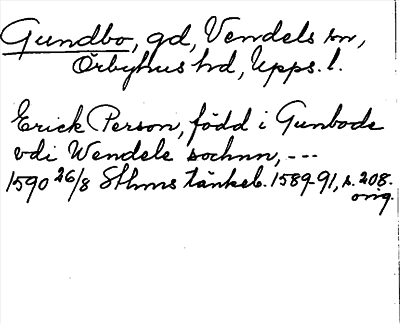 Gundbo, gd, Vendels sn,
Örbyhus hd, Upps. l.
Erick Person, född i Gunbode
vdi Wendele sochnn, ---
1590 26/8 Sthms tänkeb. 1589-91, s. 208.
orig.